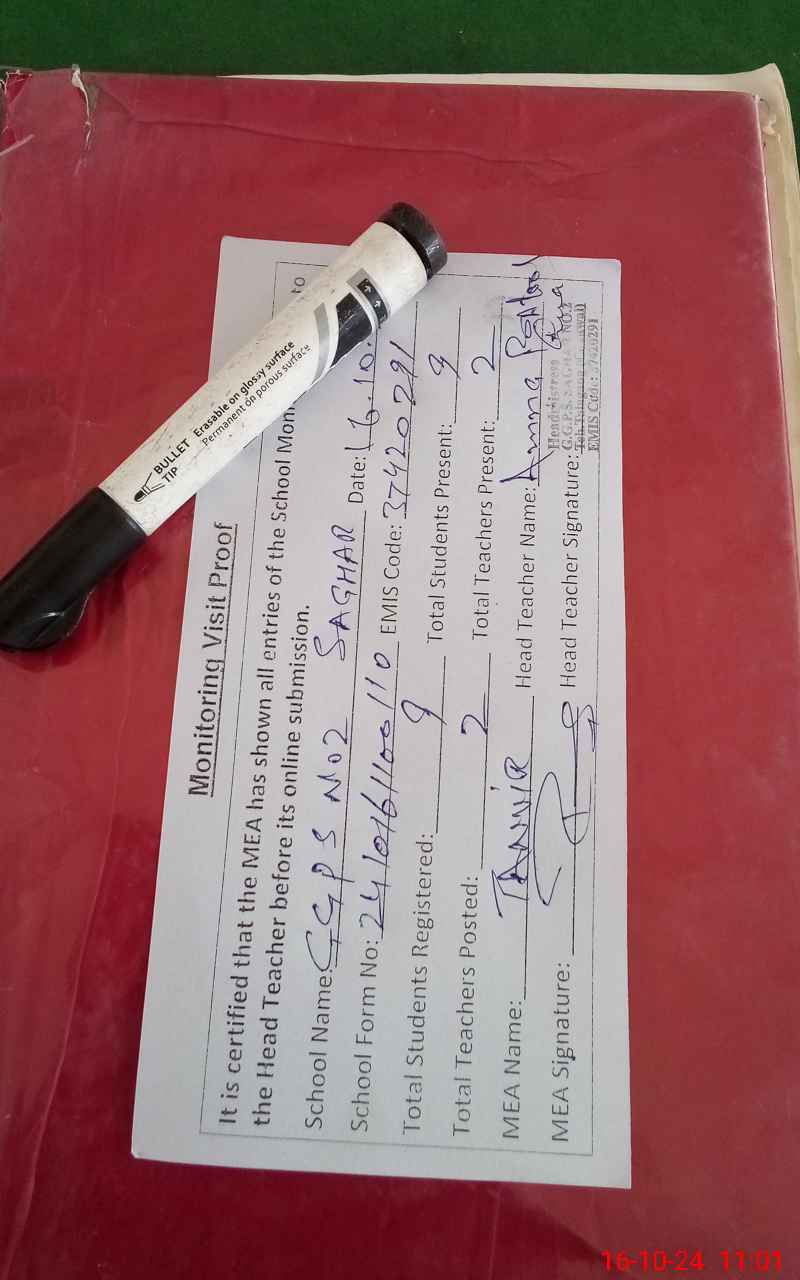 Monitoring Visit Proof
It is certified that the MEA has shown all entries of the School to
the Head Teacher before its online submission.
School Name: GGPS NO2 SAGHAR Date: 16.10.
School Form No: EMIS Code: 37420291
Total Students Registered: 9 Total Students Present: 9
Total Teachers Posted: 2 Total Teachers Present: 2
MEA Name: TANVIR Head Teacher Name: Amna
MEA Signature: Head Teacher Signature:
Headmistress
G.G.P.S. SAGHAR NO.2
EMIS Code: 37420291
BULLET TIP
Erasable on glossy surface
Permanent on porous surface
16-10-24 11:01